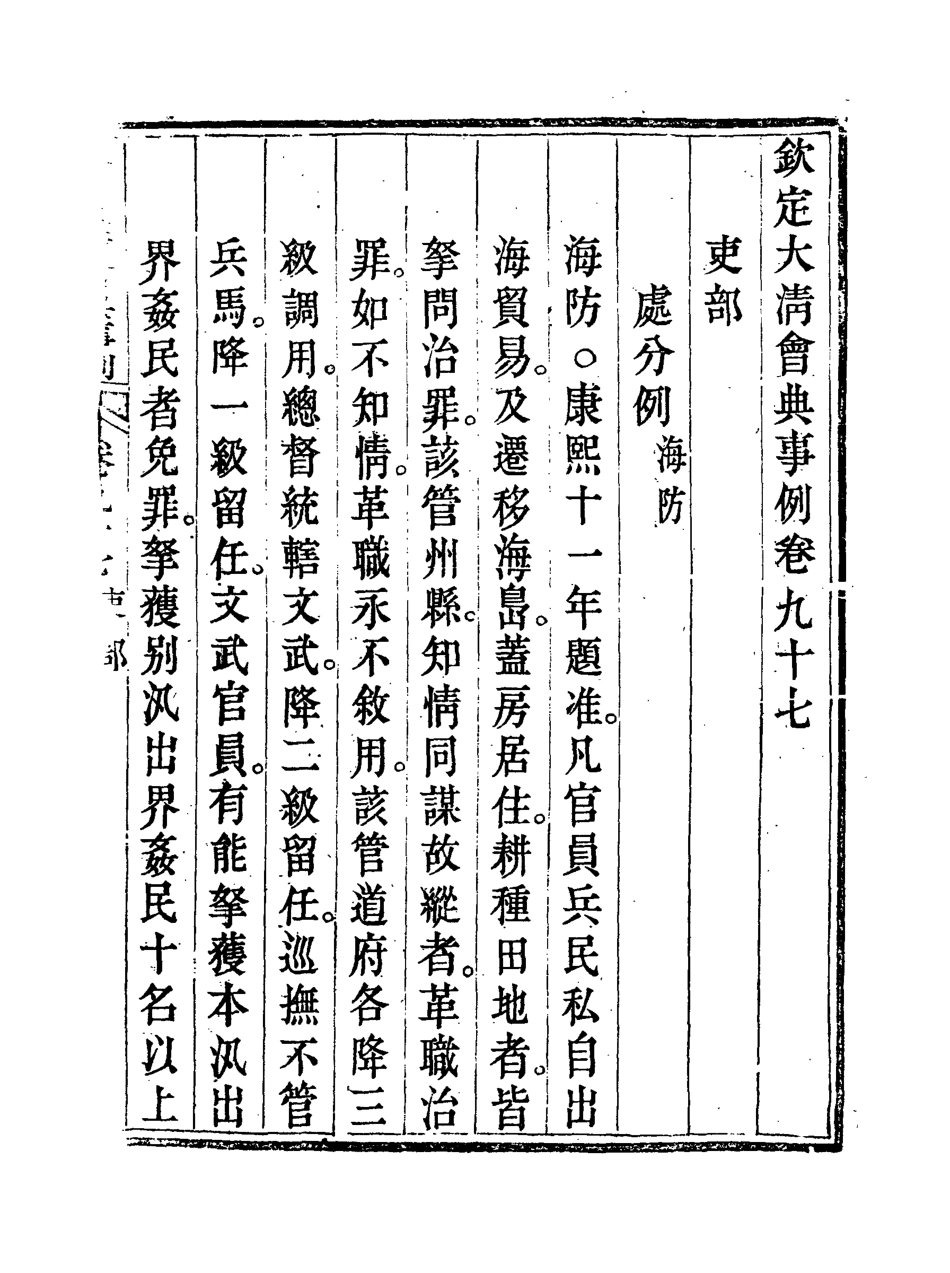 欽定大清會典事例卷九十七
吏部
處分例海防
海防○康熙十一年題准。凡官員兵民私自出
海貿易。及遷移海島。蓋房居住。耕種田地者。皆
拏問治罪。該管州縣。知情同謀故縱者。革職治
罪。如不知情。革職永不敘用。該管道府各降三
級調用。總督統轄文武。降二級留任。巡撫不管
兵馬。降一級留任。文武官員。有能拏獲本汛出
界姦民者免罪。拏獲別汛出界姦民十名以上